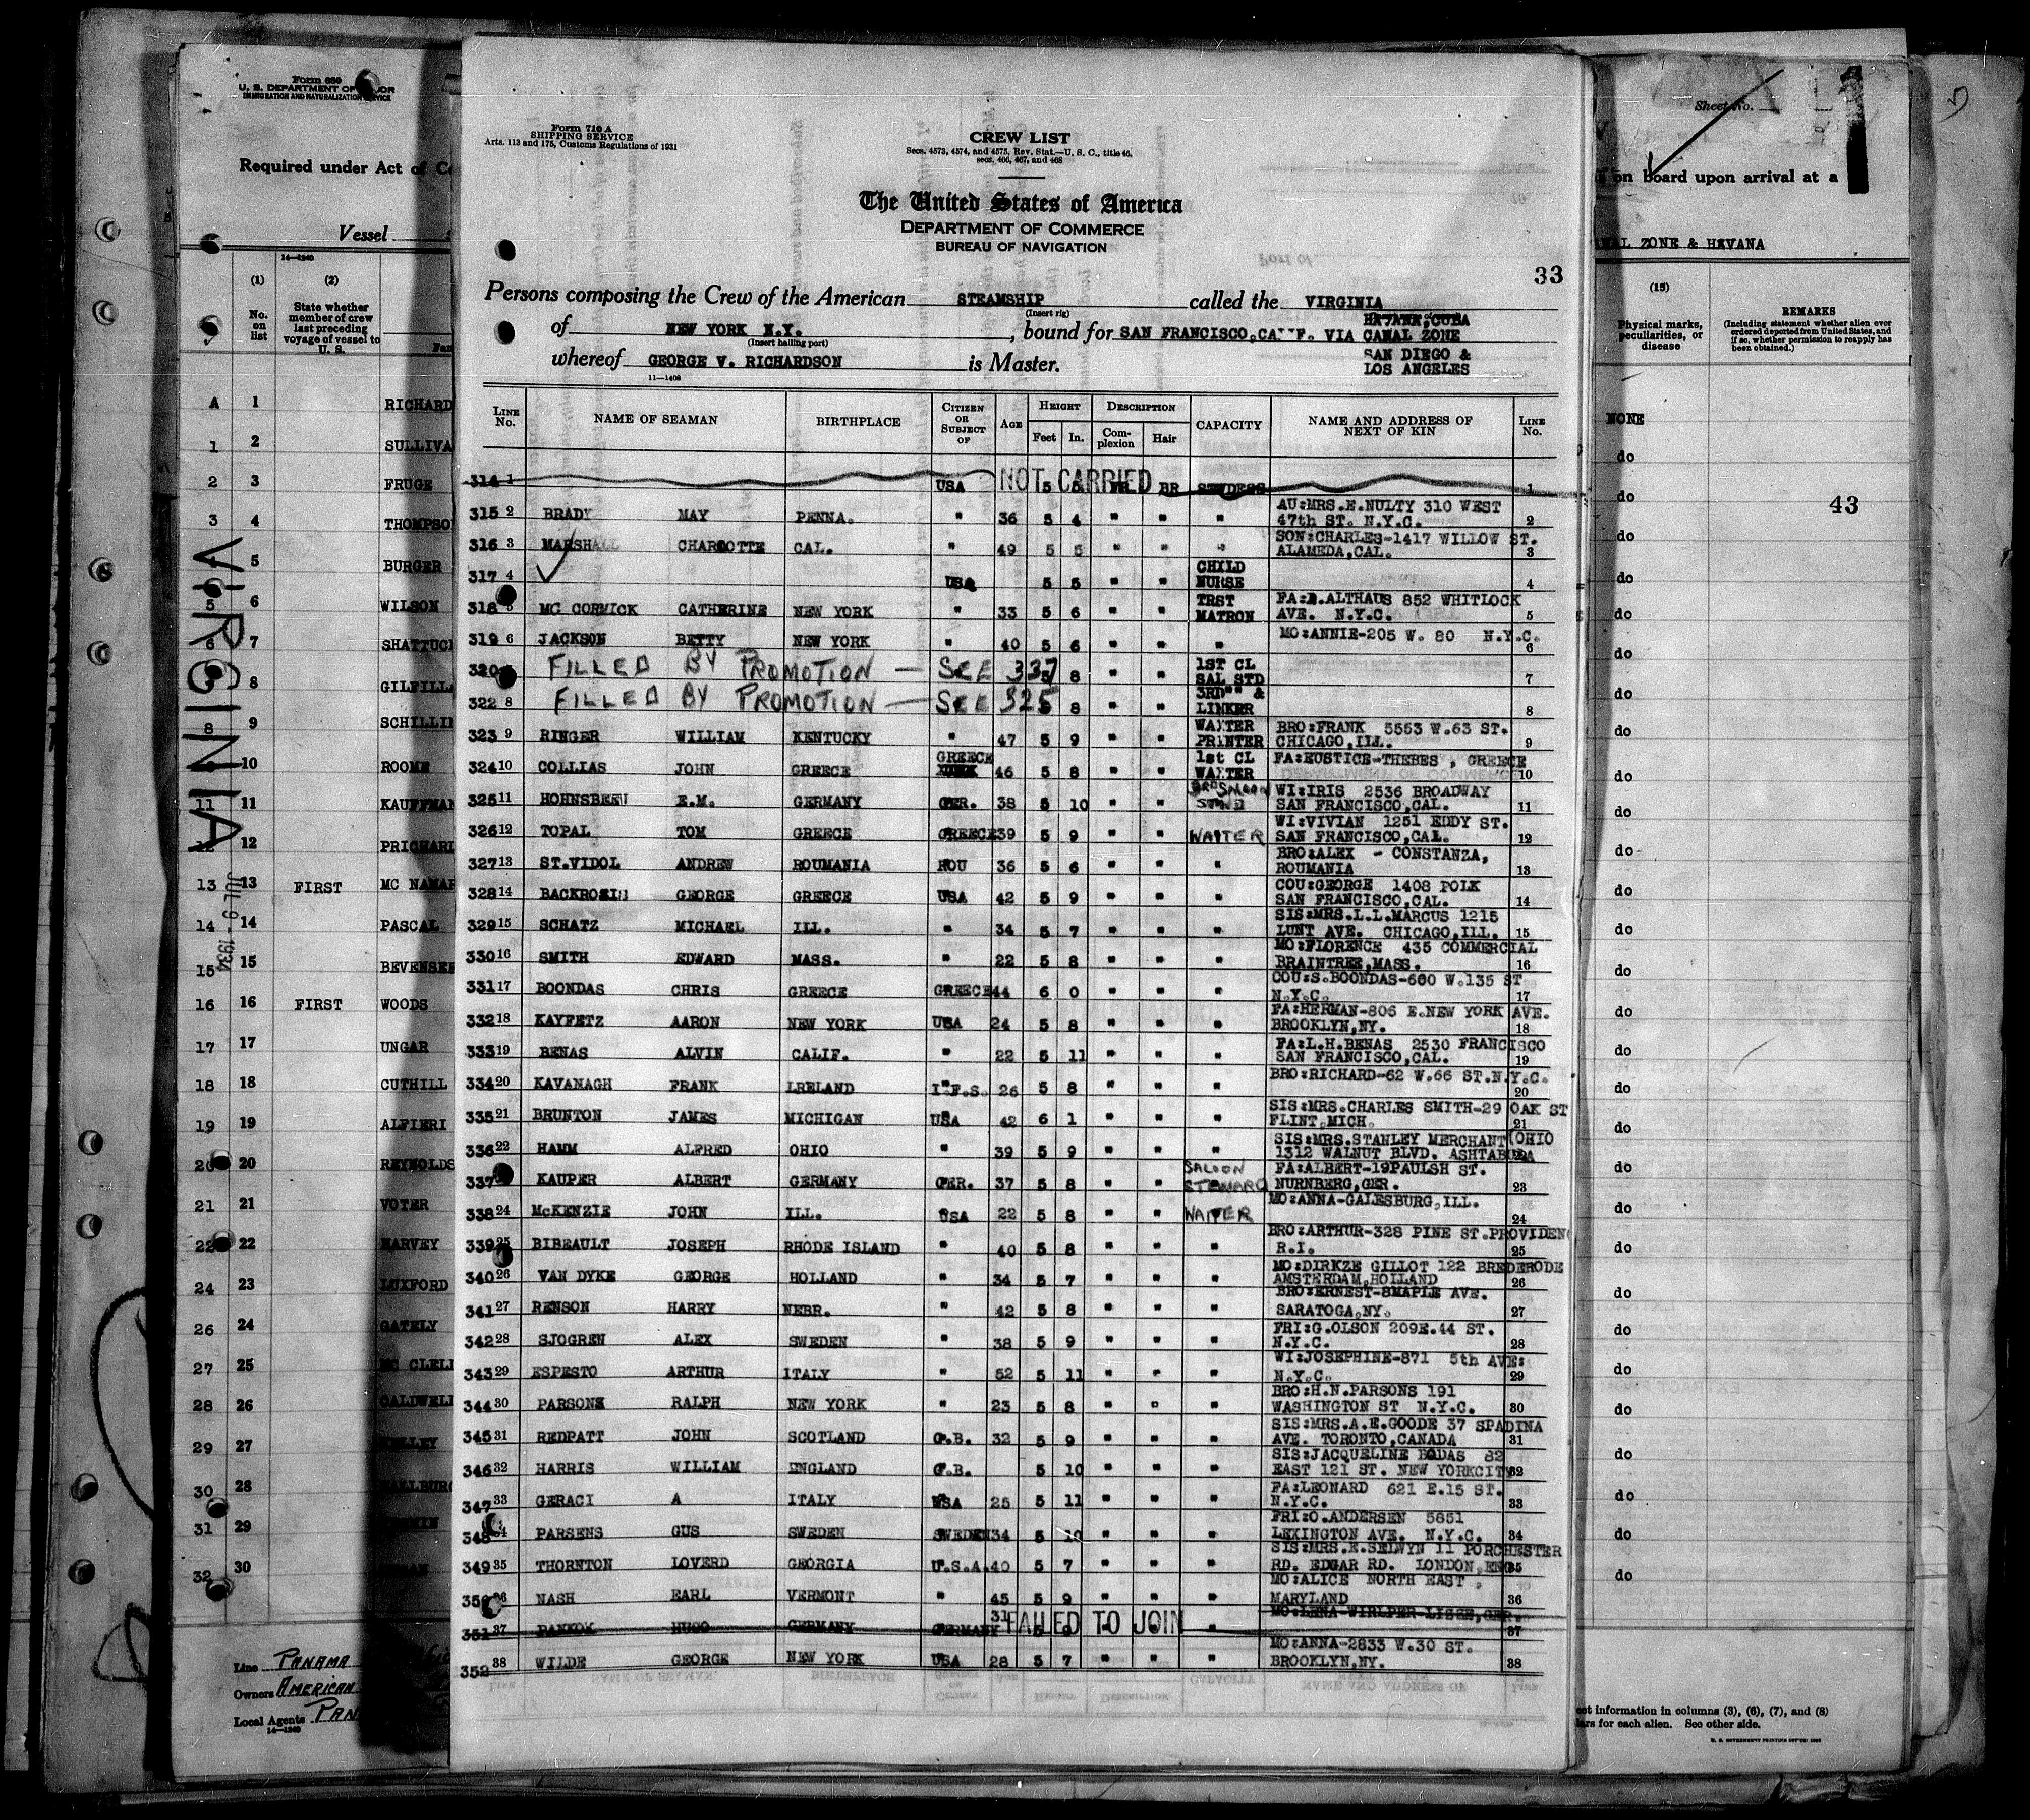 Form 680
U. S. DEPARTMENT OF
IMMIGRATION AND NATURALIZATION SERVICE
Required under Act of
Vessel
14—1240
(1) (2)
No. on list
State whether member of crew last preceding voyage of vessel to U. S.
A 1 RICHARD
1 2 SULLIVA
2 3 FRUGE
3 4 THOMPSO
5 BURGER
5 6 WILSON
6 7 SHATTUC
8 GILFILL
8 9 SCHILLI
10 ROOME
11 11 KAUFFMAN
12 12 PRICHARD
13 13 FIRST MC NAMAR
14 14 PASCAL
15 15 BEVENSEE
16 16 FIRST WOODS
17 17 UNGAR
18 18 CUTHILL
19 19 ALFIERI
20 20 REYNOLDS
21 21 VOTER
22 22 HARVEY
24 23 LUXFORD
26 24 GATELY
27 25 MC CLELL
28 26 CALDWELL
29 27
30 28
31 29
32 30
VIRGINIA
JUL 9 - 1934
Line PANAMA
Owners AMERICAN
Local Agents PAN
14—1240
Form 710 A
SHIPPING SERVICE
Arts. 113 and 175, Customs Regulations of 1931
CREW LIST
Secs. 4573, 4574, and 4575, Rev. Stat.—U. S. C., title 46,
secs. 466, 467, and 468
The United States of America
DEPARTMENT OF COMMERCE
BUREAU OF NAVIGATION
33
Persons composing the Crew of the American STEAMSHIP called the VIRGINIA
(Insert rig) HAVANA, CUBA
of NEW YORK N.Y. , bound for SAN FRANCISCO, CALIF. VIA CANAL ZONE
(Insert hailing port) SAN DIEGO &
whereof GEORGE V. RICHARDSON is Master. LOS ANGELES
11—1408
LINE No. NAME OF SEAMAN BIRTHPLACE CITIZEN OR SUBJECT OF AGE HEIGHT Feet In. DESCRIPTION Complexion Hair CAPACITY NAME AND ADDRESS OF NEXT OF KIN LINE No.
314 1 USA NOT CARRIED 5 5 BR STWDESS 1
315 2 BRADY MAY PENNA. " 36 5 4 " " " AU:MRS.E.NULTY 310 WEST 47th ST. N.Y.C. 2
316 3 MARSHALL CHARLOTTE CAL. " 49 5 5 " " " SON:CHARLES-1417 WILLOW ST. ALAMEDA,CAL. 3
317 4 USA 5 5 " " CHILD NURSE 4
318 5 MC CORMICK CATHERINE NEW YORK " 33 5 6 " " TRST MATRON FA:B.ALTHAUS 852 WHITLOCK AVE. N.Y.C. 5
319 6 JACKSON BETTY NEW YORK " 40 5 6 " " " MO:ANNIE-205 W. 80 N.Y.C. 6
320 FILLED BY PROMOTION — SEE 337 5 8 " " 1ST CL SAL STD 7
322 8 FILLED BY PROMOTION — SEE 325 5 8 " " 3RD " & LINKER 8
323 9 RINGER WILLIAM KENTUCKY " 47 5 9 " " WAITER PRINTER BRO:FRANK 5553 W.63 ST. CHICAGO,ILL. 9
324 10 COLLIAS JOHN GREECE GREECE 46 5 8 " " 1st CL WAITER FA:EUSTICE-THEBES , GREECE 10
325 11 HOHNSBEEN E.M. GERMANY GER. 38 5 10 " " 3RD SALOON STWD WI:IRIS 2536 BROADWAY SAN FRANCISCO,CAL. 11
326 12 TOPAL TOM GREECE GREECE 39 5 9 " " WAITER WI:VIVIAN 1251 EDDY ST. SAN FRANCISCO,CAL. 12
327 13 ST.VIDOL ANDREW ROUMANIA ROU 36 5 6 " " " BRO:ALEX - CONSTANZA, ROUMANIA 13
328 14 BACKROZIS GEORGE GREECE USA 42 5 9 " " " COU:GEORGE 1408 POLK SAN FRANCISCO,CAL. 14
329 15 SCHATZ MICHAEL ILL. " 34 5 7 " " " SIS:MRS.L.L.MARCUS 1215 LUNT AVE. CHICAGO,ILL. 15
330 16 SMITH EDWARD MASS. " 22 5 8 " " " MO:FLORENCE 435 COMMERCIAL BRAINTREE,MASS. 16
331 17 BOONDAS CHRIS GREECE GREECE 44 6 0 " " " COU:S.BOONDAS-600 W.135 ST N.Y.C. 17
332 18 KAYFETZ AARON NEW YORK USA 24 5 8 " " " FA:HERMAN-806 E.NEW YORK AVE. BROOKLYN,NY. 18
333 19 BENAS ALVIN CALIF. " 22 5 11 " " " FA:L.H.BENAS 2530 FRANCISCO SAN FRANCISCO,CAL. 19
334 20 KAVANAGH FRANK LRELAND I.F.S. 26 5 8 " " " BRO:RICHARD-62 W.66 ST.N.Y.C. 20
335 21 BRUNTON JAMES MICHIGAN USA 42 6 1 " " " SIS:MRS.CHARLES SMITH-29 OAK ST FLINT,MICH. 21
336 22 HAMM ALFRED OHIO " 39 5 9 " " " SIS:MRS.STANLEY MERCHANT (OHIO 1312 WALNUT BLVD. ASHTABULA
337 KAUPER ALBERT GERMANY GER. 37 5 8 " " SALOON STEWARD FA:ALBERT-19PAULSH ST. NURNBERG,GER. 23
338 24 McKENZIE JOHN ILL. USA 22 5 8 " " WAITER MO:ANNA-GALESBURG,ILL. 24
339 25 BIBEAULT JOSEPH RHODE ISLAND " 40 5 8 " " " BRO:ARTHUR-328 PINE ST.PROVIDEN R.I. 25
340 26 VAN DYKE GEORGE HOLLAND " 34 5 7 " " " MO:DIRKZE GILLOT 122 BREDERODE AMSTERDAM,HOLLAND 26
341 27 RENSON HARRY NEBR. " 42 5 8 " " " BRO:ERNEST-8MAPLE AVE. SARATOGA,NY. 27
342 28 SJOGREN ALEX SWEDEN " 38 5 9 " " " FRI:G.OLSON 209E.44 ST. N.Y.C. 28
343 29 ESPESTO ARTHUR ITALY " 52 5 11 " " " WI:JOSEPHINE-871 5th AVE: N.Y.C. 29
344 30 PARSONS RALPH NEW YORK " 23 5 8 " " " BRO:H.N.PARSONS 191 WASHINGTON ST N.Y.C. 30
345 31 REDPATT JOHN SCOTLAND G.B. 32 5 9 " " " SIS:MRS.A.E.GOODE 37 SPADINA AVE. TORONTO,CANADA 31
346 32 HARRIS WILLIAM ENGLAND G.B. 5 10 " " " SIS:JACQUELINE BODAS 82 EAST 121 ST. NEW YORKCITY 32
347 33 GERACI A ITALY USA 25 5 11 " " " FA:LEONARD 621 E.15 ST. N.Y.C. 33
348 PARSENS GUS SWEDEN SWEDEN 34 5 10 " " " FRI:O.ANDERSEN 5851 LEXINGTON AVE. N.Y.C. 34
349 35 THORNTON LOVERD GEORGIA U.S.A. 40 5 7 " " " SIS:MRS.E.SELWYN 11 PORCHESTER RD. EDGAR RD. LONDON,ENG 35
350 36 NASH EARL VERMONT " 45 5 9 " " " MO:ALICE NORTH EAST , MARYLAND 36
351 37 PANKOK HUGO GERMANY GERMANY 31 FAILED TO JOIN " MO:LENA 37
352 38 WILDE GEORGE NEW YORK USA 28 5 7 " " " MO:ANNA-2833 W.30 ST. BROOKLYN,NY. 38
Sheet No.
on board upon arrival at a
CANAL ZONE & HAVANA
(15)
Physical marks, peculiarities, or disease
REMARKS
(Including statement whether alien ever ordered deported from United States, and if so, whether permission to reapply has been obtained.)
NONE
do
do
do
43
do
do
do
do
do
do
do
do
do
do
do
do
do
do
do
do
do
do
do
do
do
do
do
do
do
do
information in columns (3), (6), (7), and (8)
for each alien. See other side.
U. S. GOVERNMENT PRINTING OFFICE